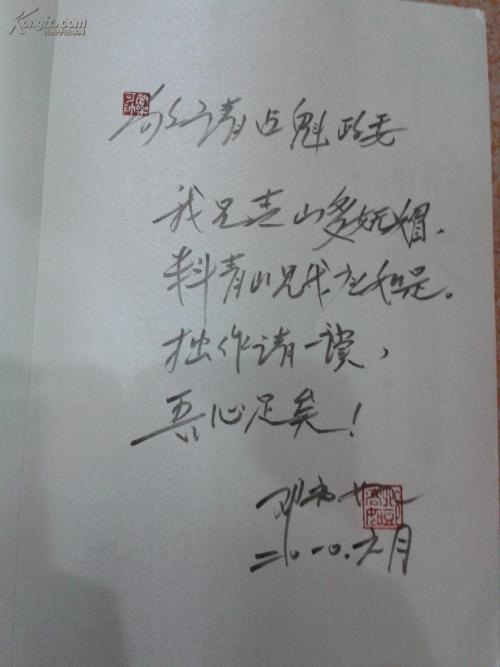 Kongfz.com
孔夫子旧书网
敬请占魁政委
我见青山多妩媚，
料青山见我应如是。
拙作请一读，
吾心足矣！
二〇一〇.六月